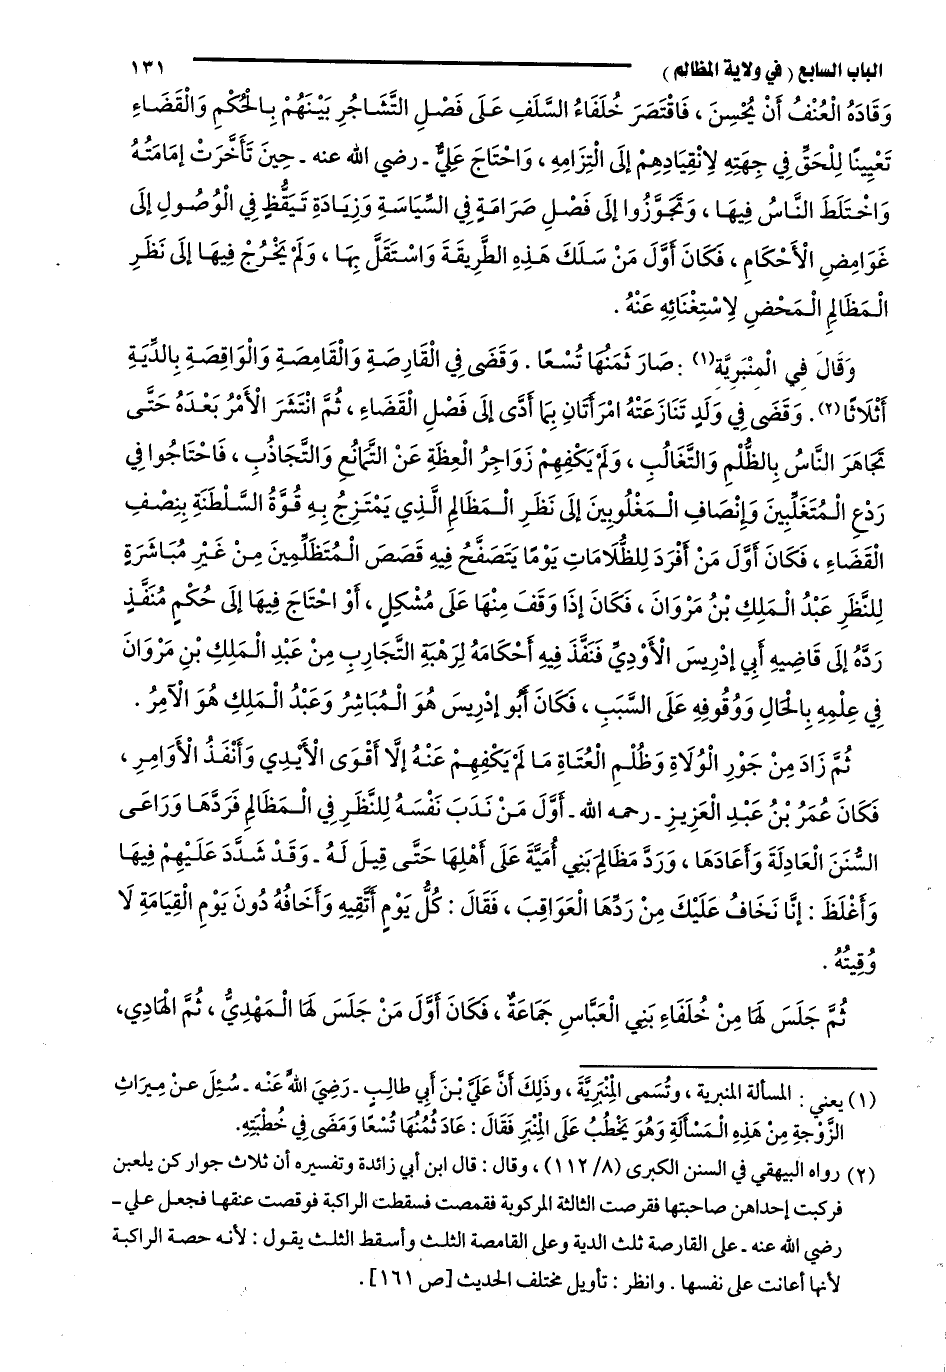 الباب السابع (في ولاية المظالم) ١٣١
وَقَادَهُ الْعُنْفُ أَنْ يُحْسِنَ ، فَاقْتَصَرَ خُلَفَاءُ السَّلَفِ عَلَى فَصْلِ التَّشَاجُرِ بَيْنَهُمْ بِالْحُكْمِ وَالْقَضَاءِ
تَعْيِينًا لِلْحَقِّ فِي جِهَتِهِ لِانْقِيَادِهِمْ إِلَى الْتِزَامِهِ ، وَاحْتَاجَ عَلِيٌّ ـ رضي الله عنه ـ حِينَ تَأَخَّرَتْ إمَامَتُهُ
وَاخْتَلَطَ النَّاسُ فِيهَا ، وَتَجَوَّزُوا إِلَى فَصْلِ صَرَامَةٍ فِي السِّيَاسَةِ وَزِيَادَةِ تَيَقُّظٍ فِي الْوُصُولِ إِلَى
غَوَامِضِ الْأَحْكَامِ ، فَكَانَ أَوَّلَ مَنْ سَلَكَ هَذِهِ الطَّرِيقَةَ وَاسْتَقَلَّ بِهَا ، وَلَمْ يَخْرُجْ فِيهَا إِلَى نَظَرِ
الْمَظَالِمِ الْمَحْضِ لِاسْتِغْنَائِهِ عَنْهُ .
وَقَالَ فِي الْمِنْبَرِيَّةِ(١) : صَارَ ثَمَنُهَا تُسْعًا . وَقَضَى فِي الْقَارِصَةِ وَالْقَامِصَةِ وَالْوَاقِصَةِ بِالدِّيَةِ
أَثْلَاثًا(٢). وَقَضَى فِي وَلَدٍ تَنَازَعَتْهُ امْرَأَتَانِ بِمَا أَدَّى إِلَى فَصْلِ الْقَضَاءِ ، ثُمَّ انْتَشَرَ الْأَمْرُ بَعْدَهُ حَتَّى
تَجَاهَرَ النَّاسُ بِالظُّلْمِ وَالتَّغَالُبِ ، وَلَمْ يَكْفِهِمْ زَوَاجِرُ الْعِظَةِ عَنْ التَّمَانُعِ وَالتَّجَاذُبِ ، فَاحْتَاجُوا فِي
رَدْعِ الْمُتَغَلِّبِينَ وَإِنْصَافِ الْمَغْلُوبِينَ إِلَى نَظَرِ الْمَظَالِمِ الَّذِي يَمْتَزِجُ بِهِ قُوَّةُ السَّلْطَنَةِ بِنِصْفِ
الْقَضَاءِ ، فَكَانَ أَوَّلَ مَنْ أَفْرَدَ لِلظُّلَامَاتِ يَوْمًا يَتَصَفَّحُ فِيهِ قَصَصَ الْمُتَظَلِّمِينَ مِنْ غَيْرِ مُبَاشَرَةٍ
لِلنَّظَرِ عَبْدُ الْمَلِكِ بْنُ مَرْوَانَ ، فَكَانَ إِذَا وَقَفَ مِنْهَا عَلَى مُشْكِلٍ ، أَوْ احْتَاجَ فِيهَا إِلَى حُكْمٍ مُنَفَّذٍ
رَدَّهُ إِلَى قَاضِيهِ أَبِي إدْرِيسَ الْأَوْدِيِّ فَنَفَّذَ فِيهِ أَحْكَامَهُ لِرَهْبَةِ التَّجَارِبِ مِنْ عَبْدِ الْمَلِكِ بْنِ مَرْوَانَ
فِي عِلْمِهِ بِالْحَالِ وَوُقُوفِهِ عَلَى السَّبَبِ ، فَكَانَ أَبُو إدْرِيسَ هُوَ الْمُبَاشِرُ وَعَبْدُ الْمَلِكِ هُوَ الْآمِرُ .
ثُمَّ زَادَ مِنْ جَوْرِ الْوُلَاةِ وَظُلْمِ الْعُتَاةِ مَا لَمْ يَكْفِهِمْ عَنْهُ إِلَّا أَقْوَى الْأَيْدِي وَأَنْفَذُ الْأَوَامِرِ ،
فَكَانَ عُمَرُ بْنُ عَبْدِ الْعَزِيزِ ـ رحمه الله ـ أَوَّلَ مَنْ نَدَبَ نَفْسَهُ لِلنَّظَرِ فِي الْمَظَالِمِ فَرَدَّهَا وَرَاعَى
السُّنَنَ الْعَادِلَةَ وَأَعَادَهَا ، وَرَدَّ مَظَالِمَ بَنِي أُمَيَّةَ عَلَى أَهْلِهَا حَتَّى قِيلَ لَهُ ـ وَقَدْ شَدَّدَ عَلَيْهِمْ فِيهَا
وَأَغْلَظَ : إنَّا نَخَافُ عَلَيْكَ مِنْ رَدِّهَا الْعَوَاقِبَ ، فَقَالَ : كُلُّ يَوْمٍ أَتَّقِيهِ وَأَخَافُهُ دُونَ يَوْمِ الْقِيَامَةِ لَا
وُقِيتُهُ .
ثُمَّ جَلَسَ لَهَا مِنْ خُلَفَاءِ بَنِي الْعَبَّاسِ جَمَاعَةٌ ، فَكَانَ أَوَّلَ مَنْ جَلَسَ لَهَا الْمَهْدِيُّ ، ثُمَّ الْهَادِي،
(١) يعني : المسألة المنبرية ، وتُسَمى الْمِنْبَرِيَّةَ ، وذَلِكَ أَنَّ عَلِيَّ بْنَ أَبِي طالِبٍ ـ رَضِيَ اللهُ عَنْه ـ سُئِلَ عَنْ مِيرَاثِ
الزَّوْجَةِ مِنْ هَذِهِ الْمَسْأَلَةِ وَهُوَ يَخْطُبُ عَلَى الْمِنْبَرِ فَقَالَ : عَادَ ثُمُنُهَا تُسْعًا وَمَضَى فِي خُطْبَتِهِ.
(٢) رواه البيهقي في السنن الكبرى (٨/ ١١٢) ، وقال : قال ابن أبي زائدة وتفسيره أن ثلاث جوار كن يلعبن
فركبت إحداهن صاحبتها فقرصت الثالثة المركوبة فقمصت فسقطت الراكبة فوقصت عنقها فجعل علي ـ
رضي الله عنه ـ على القارصة ثلث الدية وعلى القامصة الثلث وأسقط الثلث يقول : لأنه حصة الراكبة
لأنها أعانت على نفسها . وانظر : تأويل مختلف الحديث [ص ١٦١] .